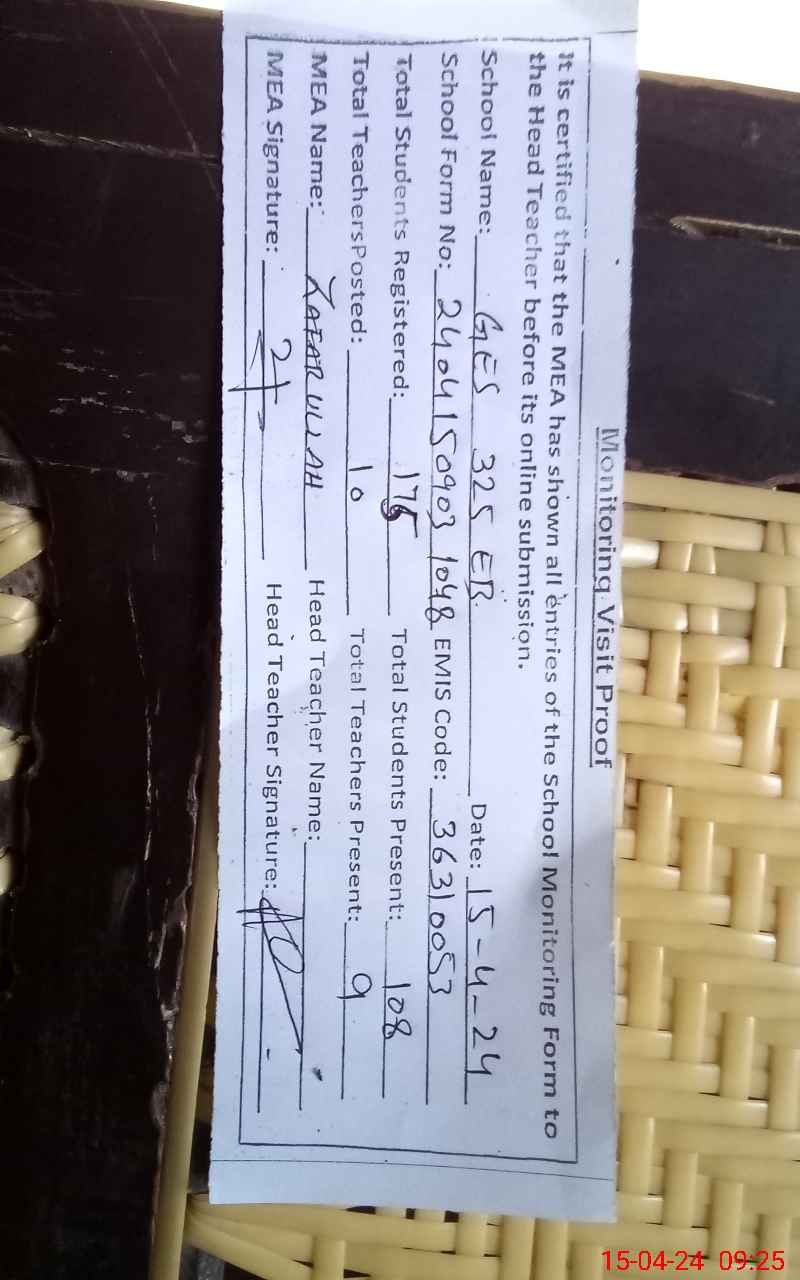 Monitoring Visit Proof
It is certified that the MEA has shown all entries of the School Monitoring Form to
the Head Teacher before its online submission.
School Name: GES 325 EB Date: 15-4-24
School Form No: 24041509031048 EMIS Code: 36310053
Total Students Registered: 175 Total Students Present: 108
Total TeachersPosted: 10 Total Teachers Present: 9
MEA Name: ZAFAR ULLAH Head Teacher Name:
MEA Signature: Head Teacher Signature:
15-04-24 09:25